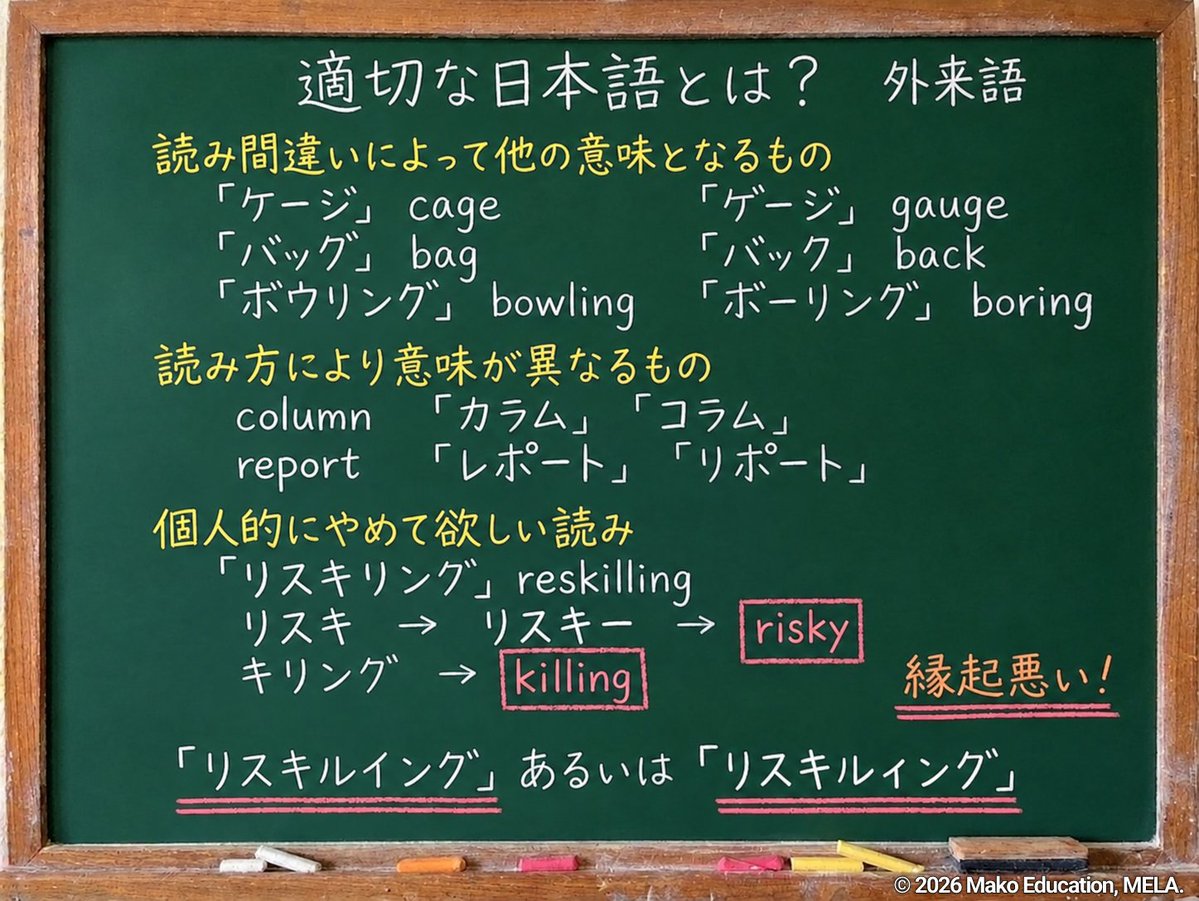 適切な日本語とは？　外来語
読み間違いによって他の意味となるもの
「ケージ」 cage　「ゲージ」 gauge
「バッグ」 bag　「バック」 back
「ボウリング」 bowling　「ボーリング」 boring
読み方により意味が異なるもの
column　「カラム」　「コラム」
report　「レポート」　「リポート」
個人的にやめて欲しい読み
「リスキリング」reskilling
リスキ　→　リスキー　→　risky
キリング　→　killing
縁起悪い！
「リスキルイング」あるいは「リスキルィング」
© 2026 Mako Education, MELA.